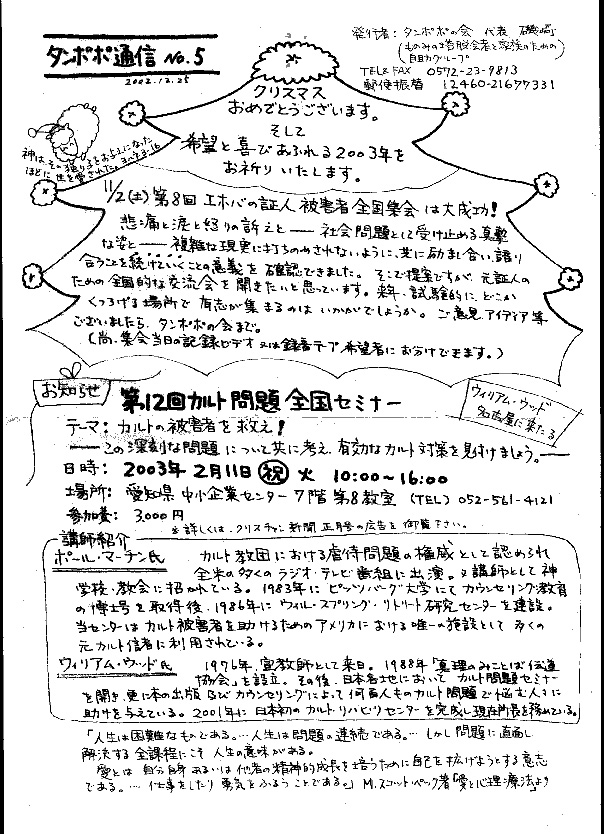 タンポポ通信 No.5
2002.12.25
発行者: タンポポの会 代表 磯崎
(ものみの塔脱会者と家族のための)
自助グループ
TEL&FAX 0572-23-9813
郵便振替 12460-21677331
クリスマス
おめでとうございます。
そして
希望と喜びあふれる2003年を
お祈りいたします。
神は、その独り子をお与えになった
ほどに世を愛された。ヨハネ3:16
11/2(土)第8回エホバの証人被害者全国集会は大成功!
悲痛と涙と怒りの訴えと――社会問題として受け止める真摯
な姿と――複雑な現実に打ちのめされないように、共に励まし合い、語り
合うことを続けていくことの意義を確認できました。そこで提案ですが、元証人の
ための全国的な交流会を開きたいと思っています。来年、試験的に、どこか
くつろげる場所で有志が集まるのはいかがでしょうか。ご意見、アイディア等
ございましたら、タンポポの会まで。
(尚、集会当日の記録ビデオ又は録音テープ希望者にお分けできます。)
お知らせ
第12回カルト問題全国セミナー
ウィリアム・ウッド
名古屋に来たる
テーマ: カルトの被害者を救え!
――この深刻な問題について共に考え、有効なカルト対策を見付けましょう。――
日時: 2003年2月11日(祝)火 10:00~16:00
場所: 愛知県中小企業センター7階第8教室 (TEL) 052-561-4121
参加費: 3,000円
※詳しくは、クリスチャン新聞正月号の広告を御覧下さい。
講師紹介
ポール・マーチン氏 カルト教団における虐待問題の権威として認められ
全米の多くのラジオ・テレビ番組に出演。又講師として神
学校・教会に招かれている。1983年にピッツバーグ大学にてカウンセリング教育
の博士号を取得後、1986年にウェルスプリング・リトリート研究センターを建設。
当センターはカルト被害者を助けるためのアメリカにおける唯一の施設として多くの
元カルト信者に利用されている。
ウィリアム・ウッド氏 1976年、宣教師として来日。1988年「真理のみことば伝道
協会」を設立。その後、日本各地においてカルト問題セミナー
を開き、更に本の出版及びカウンセリングによって何百人ものカルト問題で悩む人々に
助けを与えている。2001年に日本初のカルト・リハビリセンターを完成し現在所長を務めている。
「人生は困難なものである。…人生は問題の連続である。…しかし問題に直面し
解決する全課程にこそ人生の意味がある。
愛とは、自分自身あるいは他者の精神的成長を培うために自己を拡げようとする意志
である。…仕事をしたり勇気をふるうことである。」M.スコット・ペック著「愛と心理療法」より